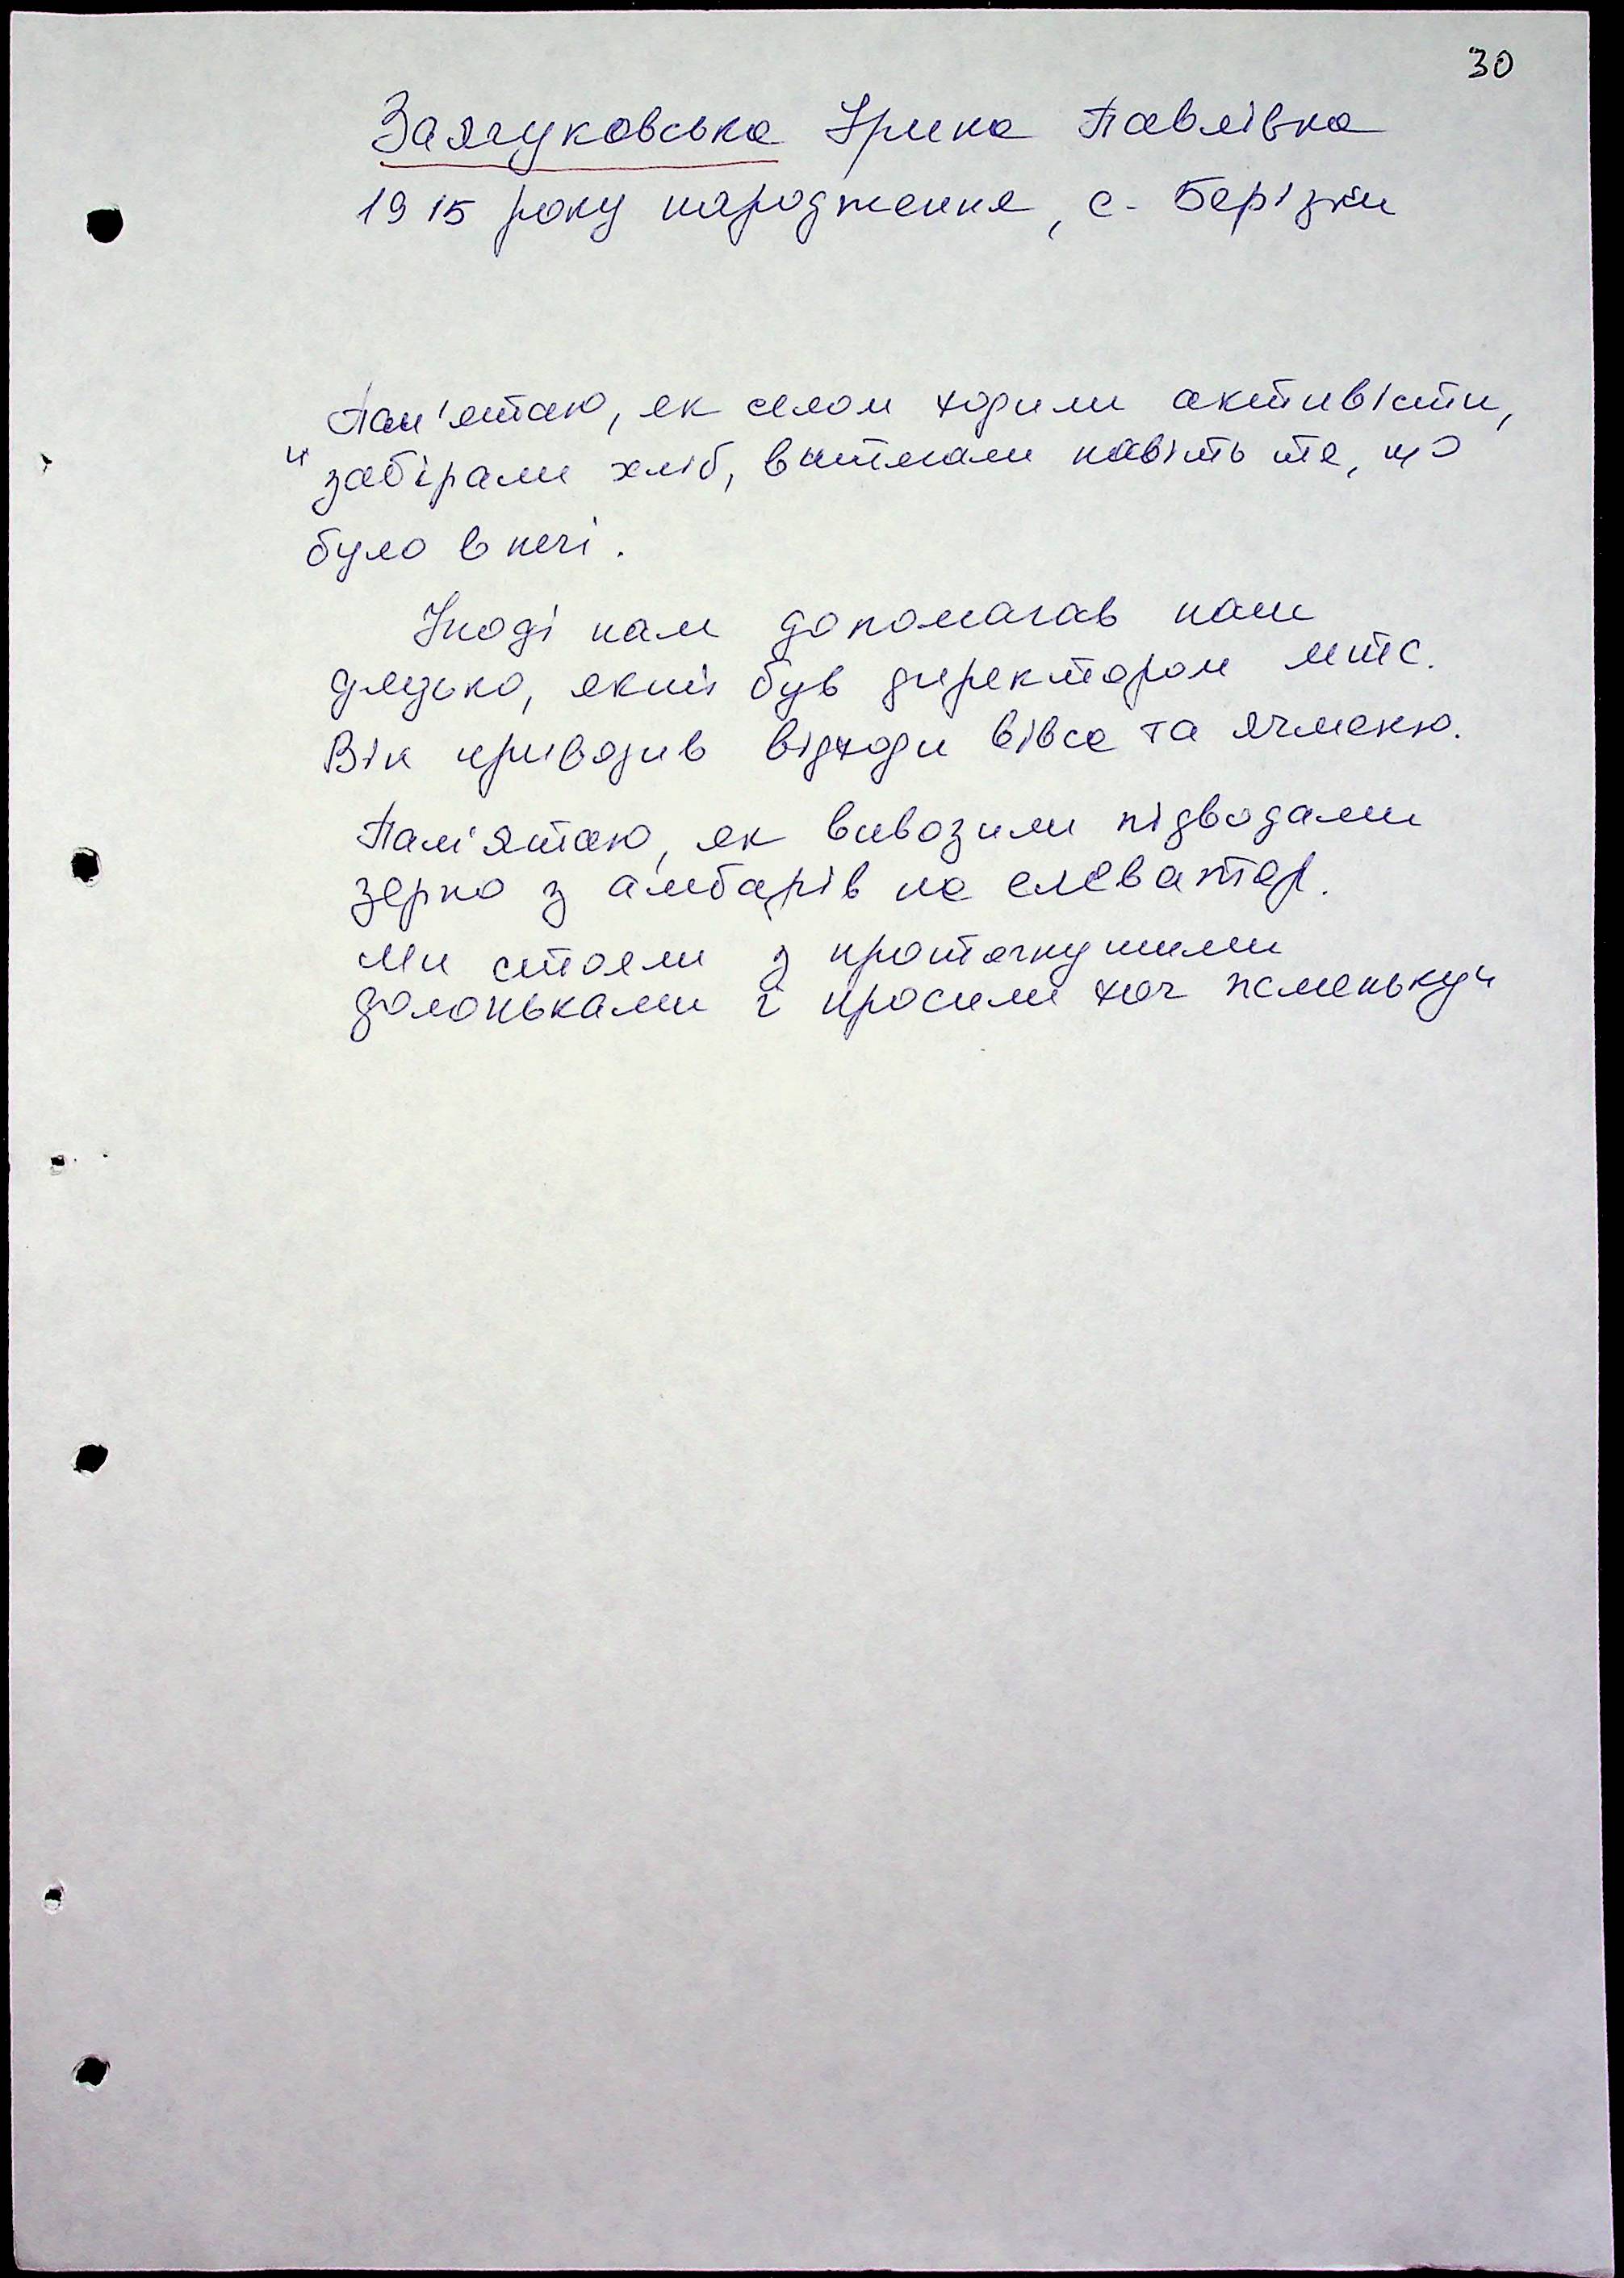 30
Заячуковська Ірина Павлівна
1915 року народження, с. Берізки
Пам'ятаю, як селом ходили активісти,
" забірали хліб, витягали навіть те, що
було в печі.
Іноді нам допомагав наш
дядько, який був директором мтс.
Він привозив відходи вівса та ячменю.
Пам'ятаю, як вивозили підводами
зерно з амбарів на елеватор.
Ми стояли з протягнутими
долоньками і просили хоч жменьку"